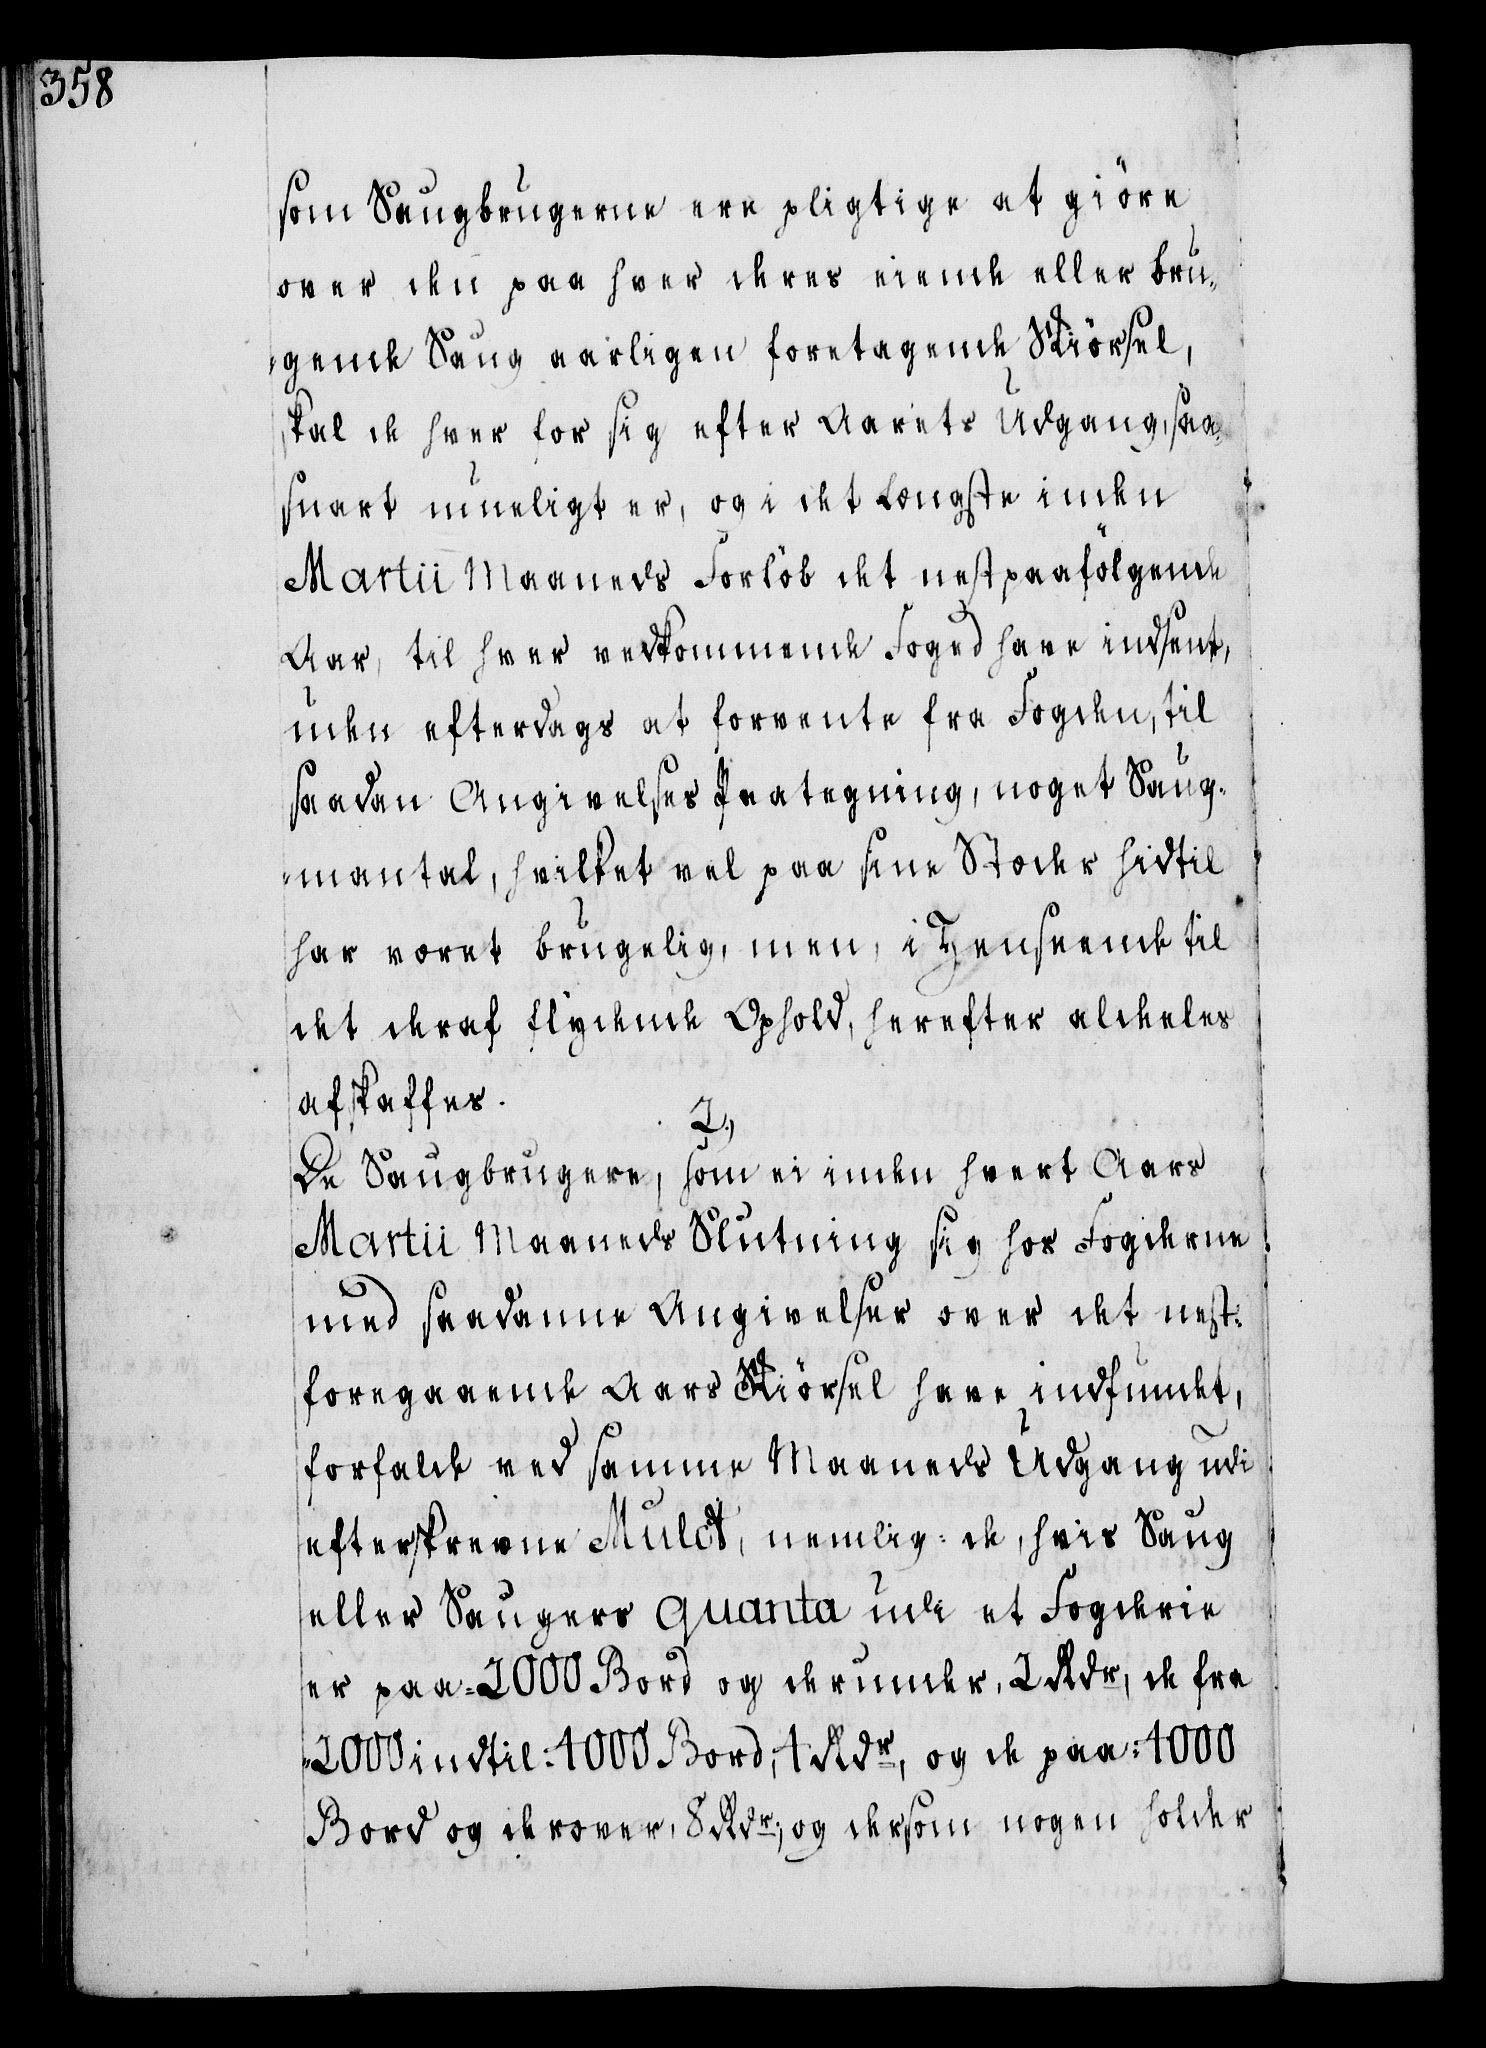 358
som Saugbrugerne ere pligtige at giöre
over den paa hver deres eiende eller bru-
-gende Saug aarligen foretagende Skiörsel,
skal de hver for sig efter Aarets Udgang, saa-
snart mueligt er, og i det længste inden
Martii Maaneds Forlöb det nestpaafölgende
Aar, til hver vedkommende Foged have indsent,
uden efterdags at forvente fra Fogden, til
saadan Angivelses Paategning, noget Saug-
-mantal, hvilket vel paa sine Stæder hidtil
har været brugelig, men, i Henseende til
det deraf flydende Ophold, herefter aldeeles
afskaffes.
2,
De Saugbrugere, som ei inden hvert Aars
Martii Maaneds Slutning sig hos Fogderne
med saadanne Angivelser over det nest-
foregaaende Aars Skiörsel have indfundet,
forfalde ved samme Maaneds Udgang udi
efterskrevne Mulct, nemlig: de, hvis Saug
eller Saugers Quanta udi et Fogderie
er paa=2000 Bord og derunder, 2 Rdr, de fra
-2000 indtil: 4000 Bord, 4 Rdr, og de paa: 4000
Bord og derover, 8 Rdr; og dersom nogen holder